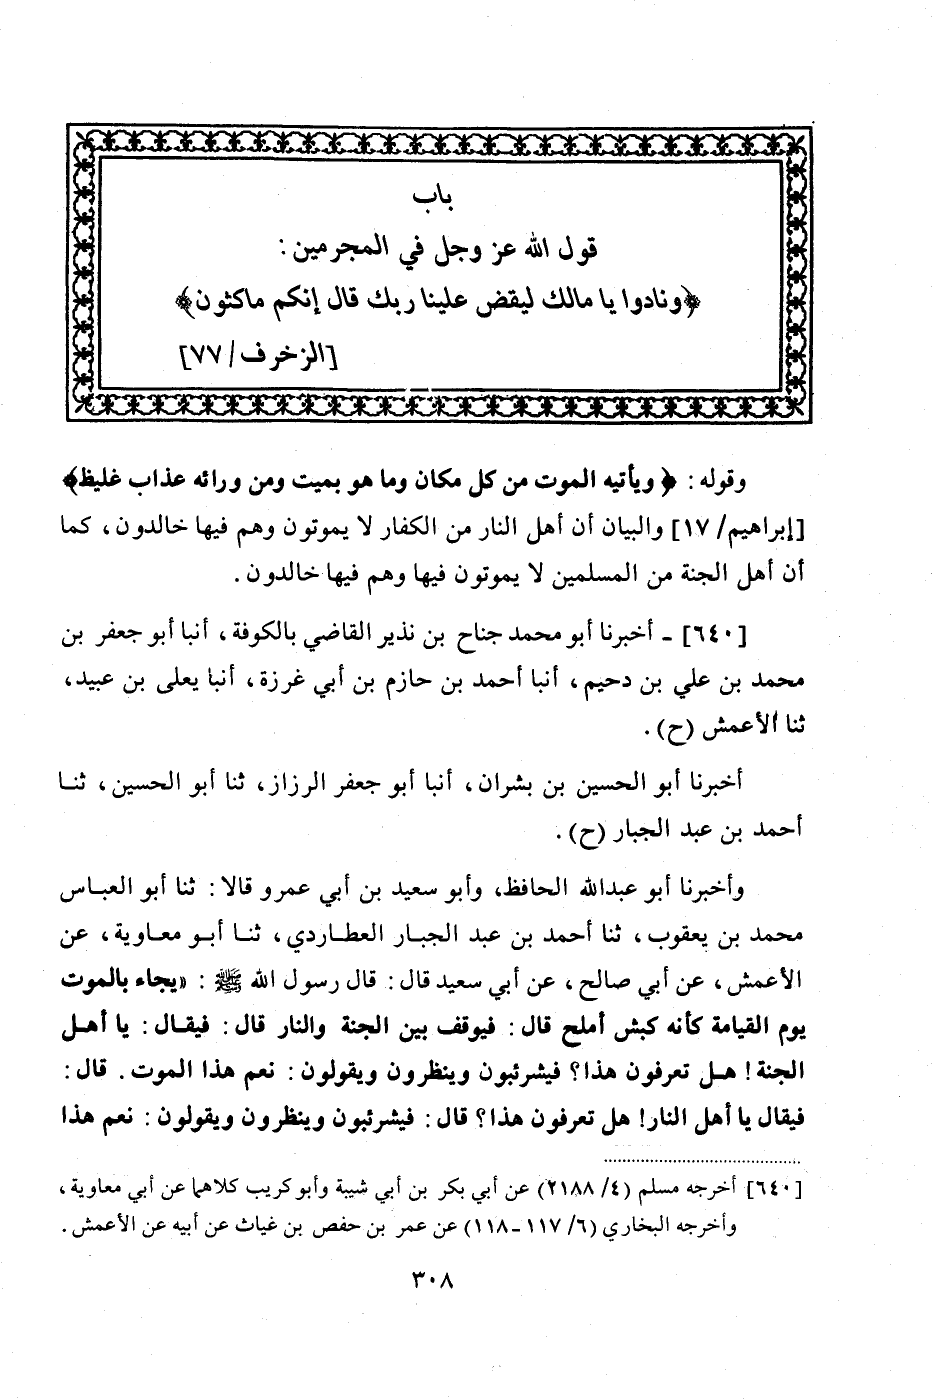 باب
قول الله عز وجل في المجرمين :
﴿ونادوا يا مالك ليقض علينا ربك قال إنكم ماكثون﴾
[الزخرف/٧٧]
وقوله : ﴿ ويأتيه الموت من كل مكان وما هو بميت ومن ورائه عذاب غليظ﴾
[إبراهيم/ ١٧] والبيان أن أهل النار من الكفار لا يموتون وهم فيها خالدون، كما
أن أهل الجنة من المسلمين لا يموتون فيها وهم فيها خالدون .
[٦٤٠] ـ أخبرنا أبو محمد جناح بن نذير القاضي بالكوفة، أنبا أبو جعفر بن
محمد بن علي بن دحيم، أنبا أحمد بن حازم بن أبي غرزة، أنبا يعلى بن عبيد،
ثنا الأعمش (ح) .
أخبرنا أبو الحسين بن بشران، أنبا أبو جعفر الرزاز، ثنا أبو الحسين، ثنا
أحمد بن عبد الجبار (ح) .
وأخبرنا أبو عبدالله الحافظ، وأبو سعيد بن أبي عمرو قالا : ثنا أبو العباس
محمد بن يعقوب، ثنا أحمد بن عبد الجبار العطاردي، ثنا أبو معاوية، عن
الأعمش، عن أبي صالح، عن أبي سعيد قال : قال رسول الله ﷺ : «يجاء بالموت
يوم القيامة كأنه كبش أملح قال : فيوقف بين الجنة والنار قال : فيقال : يا أهل
الجنة! هل تعرفون هذا؟ فيشرئبون وينظرون ويقولون : نعم هذا الموت . قال :
فيقال يا أهل النار! هل تعرفون هذا؟ قال : فيشرئبون وينظرون ويقولون : نعم هذا
[٦٤٠] أخرجه مسلم (٤/ ٢١٨٨) عن أبي بكر بن أبي شيبة وأبو كريب كلاهما عن أبي معاوية،
وأخرجه البخاري (٦/ ١١٧ ـ ١١٨) عن عمر بن حفص بن غياث عن أبيه عن الأعمش .
٣٠٨